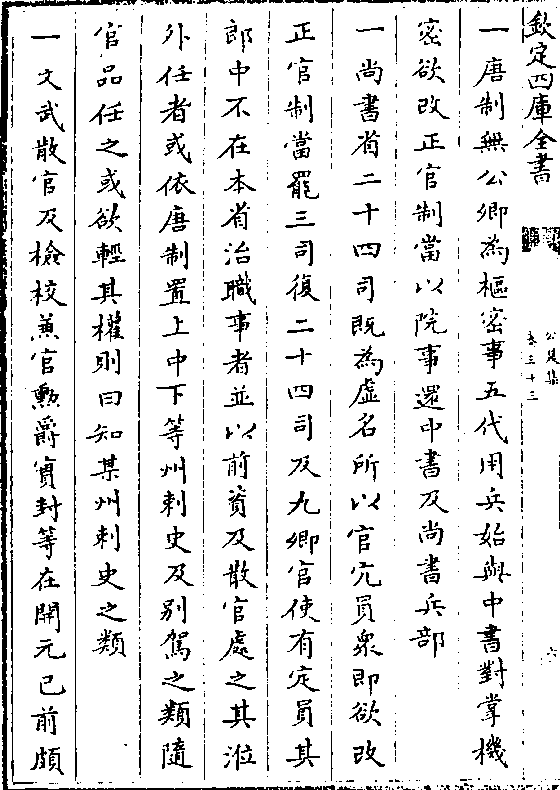 欽定四庫全書
公是集
卷三十三
六
一唐制無公卿為樞密事五代用兵始與中書對掌機
密欲改正官制當以院事還中書及尚書兵部
一尚書省二十四司既為虚名所以官冗員衆即欲改
正官制當罷三司復二十四司及九卿官使有定員其
郎中不在本省治職事者並以前資及散官處之其涖
外任者或依唐制置上中下等州刺史及别駕之類隨
官品任之或欲輕其權則曰知某州刺史之類
一文武散官及檢校兼官勲爵實封等在開元已前頗